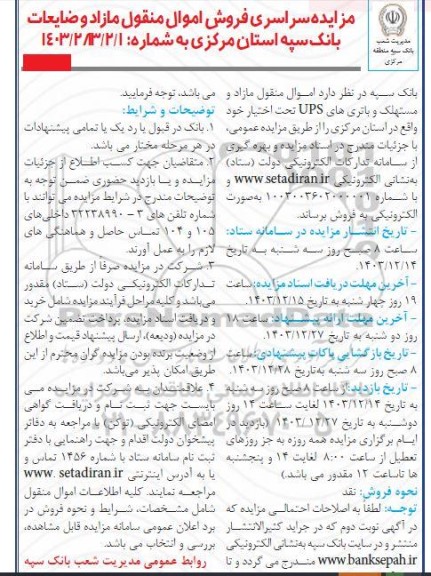 مزایده سراسری فروش اموال منقول مازاد و ضایعات
بانک سپه استان مرکزی به شماره: ۱۴۰۳/۲/۳/۲/۱
مدیریت شعب
بانک سپه منطقه
مرکزی
بانک سپه در نظر دارد اموال منقول مازاد و
مستهلک و باتری های UPS تحت اختیار خود
واقع در استان مرکزی را از طریق مزایده عمومی،
با جزئیات مندرج در اسناد مزایده و بهره گیری
از سامانه تدارکات الکترونیکی دولت (ستاد)
به‌نشانی الکترونیکی www.setadiran.ir و
با شماره ۱۰۰۳۰۰۳۶۰۲۰۰۰۰۰۱ به‌صورت
الکترونیکی به فروش برساند.
- تاریخ انتشار مزایده در سامانه ستاد:
ساعت ۸ صبح روز سه شنبه به تاریخ
۱۴۰۳/۱۲/۱۴.
- آخرین مهلت دریافت اسناد مزایده: ساعت
۱۹ روز چهار شنبه به تاریخ ۱۴۰۳/۱۲/۱۵.
- آخرین مهلت ارائه پیشنهاد: ساعت ۱۸
روز دو شنبه به تاریخ ۱۴۰۳/۱۲/۲۷.
- تاریخ بازگشایی پاکات پیشنهادی: ساعت
۸ صبح روز سه شنبه به‌تاریخ ۱۴۰۳/۱۲/۲۸.
- تاریخ بازدید: از ساعت ۸ صبح روز سه شنبه
به تاریخ ۱۴۰۳/۱۲/۱۴ لغایت ساعت ۱۴ روز
دوشنبه به تاریخ ۱۴۰۳/۱۲/۲۷ (بازدید در
ایام برگزاری مزایده همه روزه به جز روزهای
تعطیل از ساعت ۸:۰۰ لغایت ۱۴ و پنجشنبه
ها تا ساعت ۱۲ مقدور می باشد.)
نحوه فروش: نقد
توجه: لطفا به اصلاحات احتمالی مزایده که
در آگهی نوبت دوم که در جراید کثیرالانتشار
منتشر و در سایت بانک سپه به‌نشانی الکترونیکی
www.banksepah.ir مندرج می گردد و تا
می باشد، توجه فرمایید.
توضیحات و شرایط:
۱. بانک در قبول یا رد یک یا تمامی پیشنهادات
در هر مرحله مختار می باشد.
۲. متقاضیان جهت کسب اطلاع از جزئیات
مزایده و یا بازدید حضوری ضمن توجه به
توضیحات مندرج در شرایط مزایده می توانند با
شماره تلفن های ۳ – ۳۲۲۳۸۹۹۰ داخلی‌های
۱۰۵ و ۱۰۴ تماس حاصل و هماهنگی های
لازم را به عمل آورند.
۳. شرکت در مزایده صرفا از طریق سامانه
تدارکات الکترونیکی دولت (ستاد) مقدور
می‌باشد و کلیه مراحل فرآیند مزایده شامل خرید
و دریافت اسناد مزایده، پرداخت تضمین شرکت
در مزایده (ودیعه)، ارسال پیشنهاد قیمت و اطلاع
از وضعیت برنده بودن مزایده گران محترم از این
طریق امکان پذیر می‌باشد.
۴. علاقمندان به شرکت در مزایده می
بایست جهت ثبت نام و دریافت گواهی
امضای الکترونیکی (توکن) با مراجعه به دفاتر
پیشخوان دولت اقدام و جهت راهنمایی با دفتر
ثبت نام سامانه ستاد با شماره ۱۴۵۶ تماس و
یا به آدرس اینترنتی www.setadiran.ir
مراجعه نمایند. کلیه اطلاعات اموال منقول
شامل مشخصات، شرایط و نحوه فروش در
برد اعلان عمومی سامانه مزایده قابل مشاهده،
بررسی و انتخاب می باشد.
روابط عمومی مدیریت شعب بانک سپه